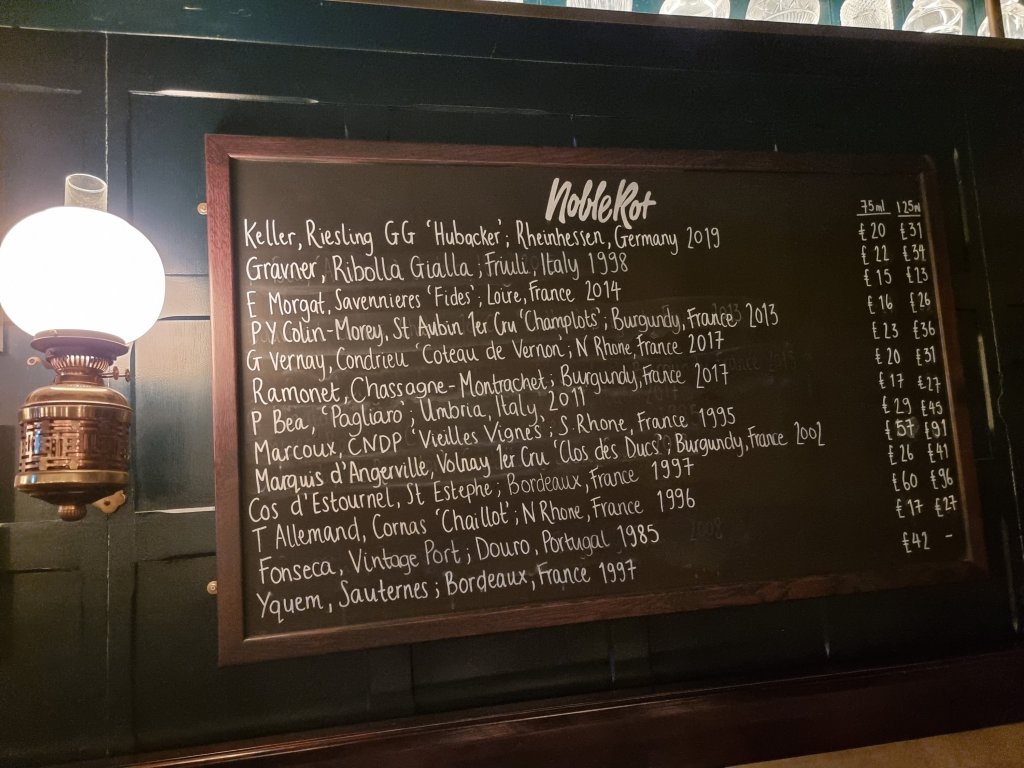 Noble Rot
75ml 125ml
Keller, Riesling GG 'Hubacker'; Rheinhessen, Germany 2019 £20 £31
Gravner, Ribolla Gialla; Friuli, Italy 1998 £22 £34
E Morgat, Savennieres 'Fides'; Loire, France 2014 £15 £23
P Y Colin-Morey, St Aubin 1er Cru 'Champlots'; Burgundy, France 2013 £16 £26
G Vernay, Condrieu 'Coteau de Vernon'; N Rhone, France 2017 £23 £36
Ramonet, Chassagne-Montrachet; Burgundy, France 2017 £20 £31
P Bea, 'Pagliaro'; Umbria, Italy, 2011 £17 £27
Marcoux, CNDP 'Vieilles Vignes'; S Rhone, France 1995 £29 £45
Marquis d'Angerville, Volnay 1er Cru 'Clos des Ducs'; Burgundy, France 2002 £57 £91
Cos d'Estournel, St Estephe; Bordeaux, France 1997 £26 £41
T Allemand, Cornas 'Chaillot'; N Rhone, France 1996 £60 £96
Fonseca, Vintage Port; Douro, Portugal 1985 £17 £27
Yquem, Sauternes; Bordeaux, France 1997 £42 -